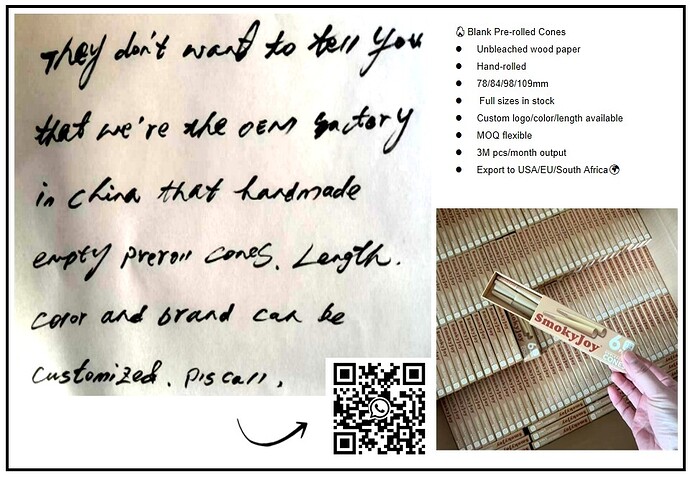 They don't want to tell you
that we're the OEM factory
in china that handmade
empty preroll cones. Length.
color and brand can be
customized. pls call.
Blank Pre-rolled Cones
Unbleached wood paper
Hand-rolled
78/84/98/109mm
Full sizes in stock
Custom logo/color/length available
MOQ flexible
3M pcs/month output
Export to USA/EU/South Africa
smokyJoy
6
CONES